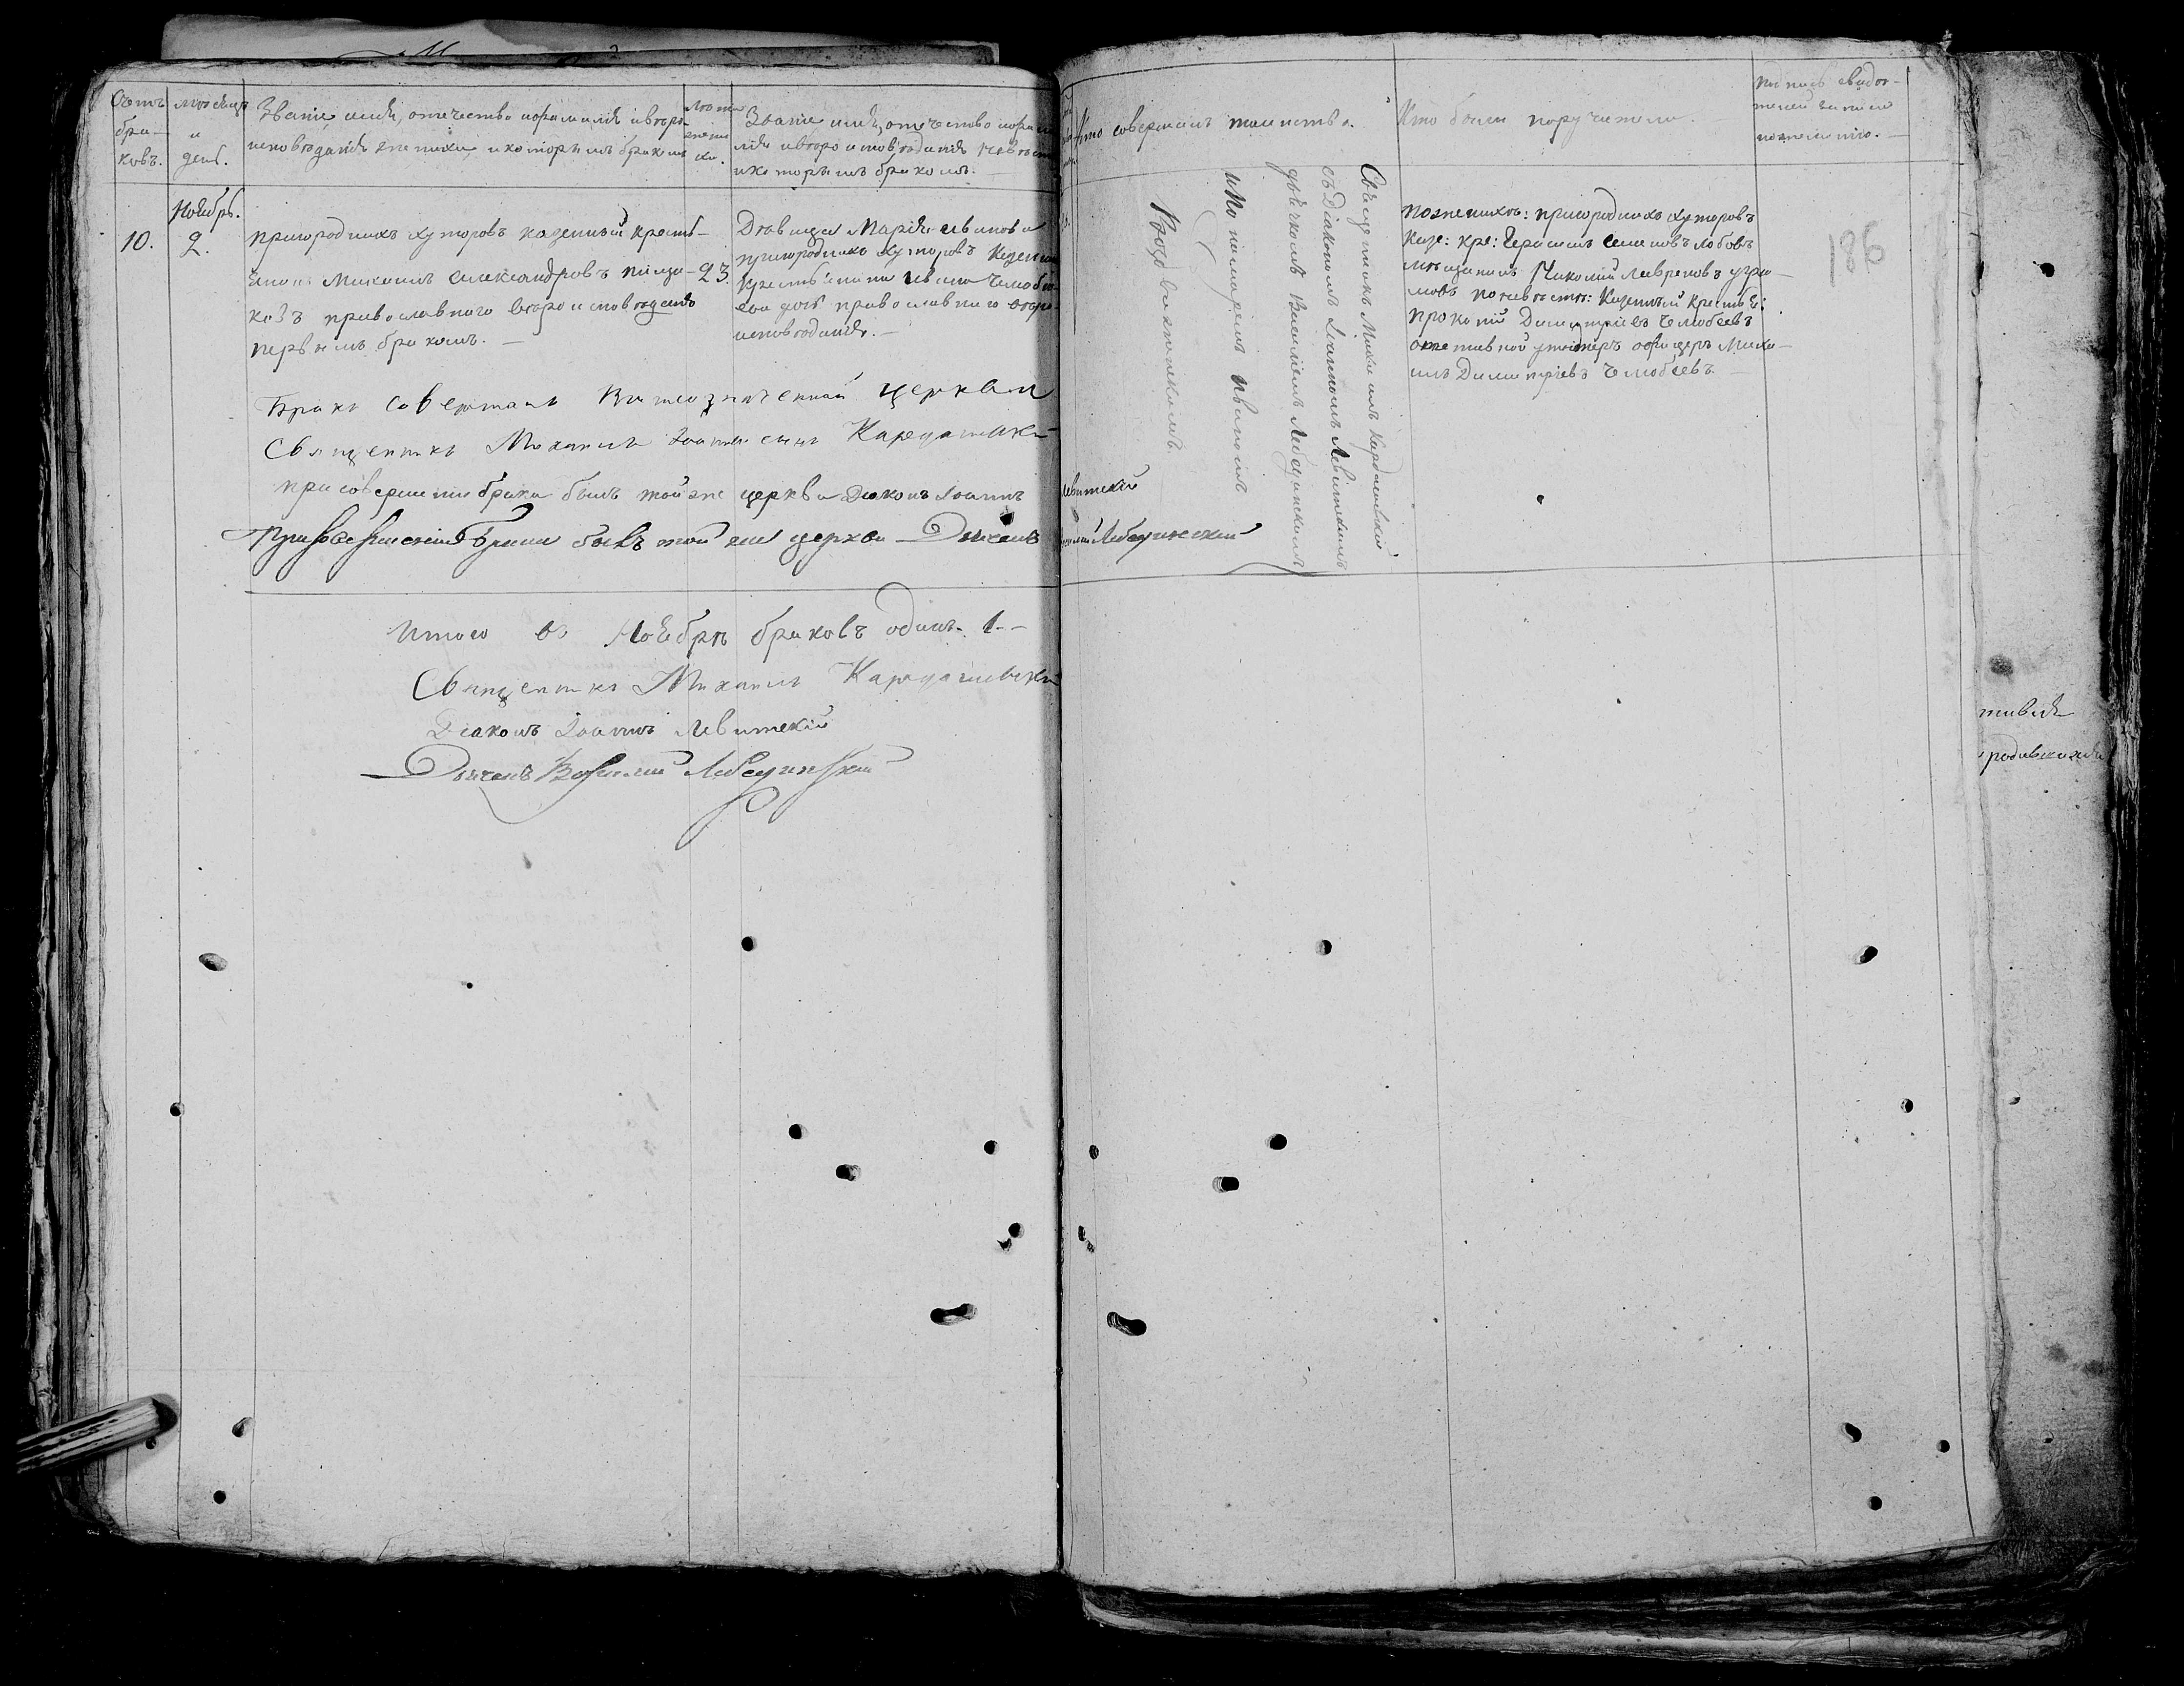 Счетъ браковъ.
Мѣсяцъ и день.
Званіе, имя, отечество и фамилія и вѣро-
исповѣданія жениха, и которымъ бракомъ
Лѣта жениха.
Званіе имя, отечество и фами
лія и вѣро исповѣданія невѣсты
и которымъ бракомъ.
Кто совершалъ таинство.
Кто были поручители.
Подпись свидѣ-
телей записи
по желанію.
186
Ноября.
10.
2.
Пригородныхъ хуторовъ казенный кресть-
янинъ Михаилъ Александровъ
православнаго вѣроисповѣданія
первымъ бракомъ.
23.
Дѣвица Марія Иванова
пригородныхъ хуторовъ казенна
крестьянина Ивана Челюбѣ-
ева дочь православнаго вѣро-
исповѣданія.
Священникъ Михаилъ Кардашевскій
съ Діакономъ Іоанномъ Левитскимъ
дьячкомъ Василіемъ Лебединскимъ
и Пономаремъ Иваномъ
Поженихѣ: пригородныхъ хуторовъ
Казе: кре: Герасимъ Семеновъ Любовъ
мѣщанинъ Николай Лавреновъ Угрю-
мовъ по невѣстѣ: Казенный крестья:
Прокопій Димитріевъ Челюбеевъ
отставной унтеръ офицеръ Миха-
илъ Димитріевъ Челюбеевъ
Бракъ совершалъ вышеозначенной церкви
Священникъ Михаилъ Іоанновъ сынъ Кардашевскій
При совершеніи брака былъ той же церкви Діаконъ Іоаннъ Левитскій
При совершеніи брака былъ той же церкви Дьячекъ Василій Лебединскій
Итого въ Ноябрѣ браковъ одинъ. 1.
Священникъ Михаилъ Кардашевскій
Діаконъ Іоаннъ Левитскій
Дьячекъ Василій Лебединскій